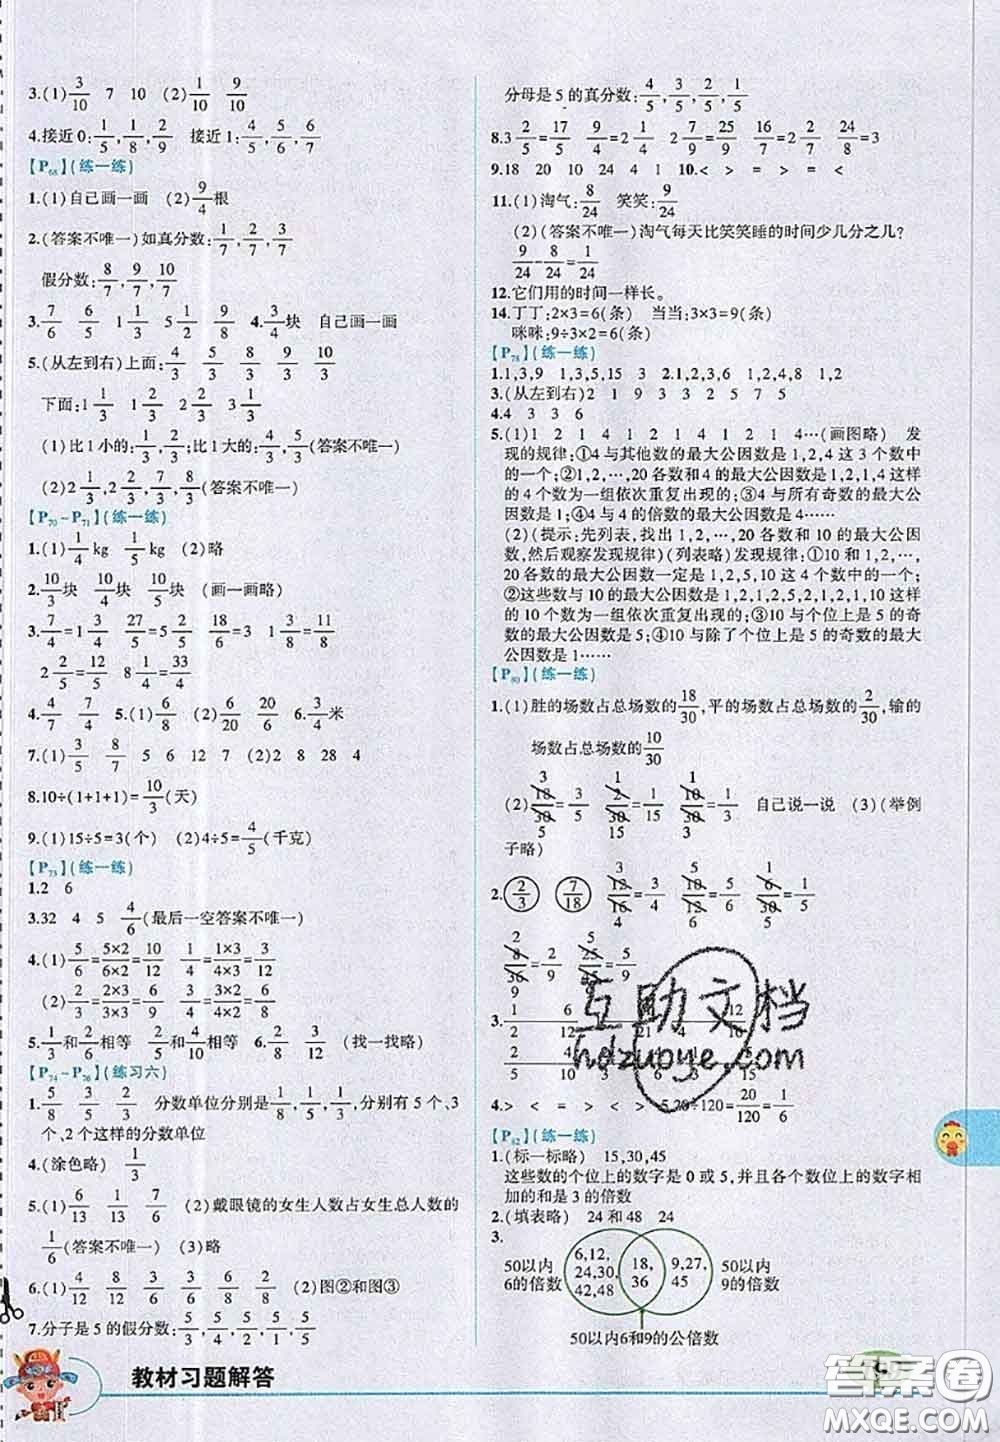 3.(1) 3/10 7 10 (2) 1/10 9/10
4.接近0: 1/5, 1/8, 2/9 接近1: 4/5, 5/6, 6/7
【P68】(练一练)
1.(1)自己画一画 (2) 9/4根
2.(答案不唯一)如真分数: 1/7, 2/7, 3/7
假分数: 8/7, 9/7, 10/7
3. 7/6 6/6 1 1/3 5 1/2 9/8 4. 3/4块 自己画一画
5.(从左到右)上面: 4/3 5/3 6/3 7/3 8/3
下面: 1 1/3 1 2/3 2 2/3 3 1/3
(1)比1小的: 1/3, 2/3;比1大的: 4/3, 5/3(答案不唯一)
(2)2 1/3, 2 2/3, 7/3, 8/3(答案不唯一)
【P70~P71】(练一练)
1.(1) 1/4 kg 1/5 kg (2)略
2. 10/3块 10/4块 10/5块 (画一画略)
3. 7/4=1 3/4 27/5=5 2/5 18/6=3 1 3/8=11/8
2 2/5=12/5 1 8/10=18/10 4 1/8=33/8
4. 4/7 7/4 5.(1) 6/8 (2) 6/20 20/6 6. 3/4米
7.(1) 3/5 8/7 5 6 12 7 (2)2 8 28 4
8.10÷(1+1+1)=10/3(天)
9.(1)15÷5=3(个) (2)4÷5=4/5(千克)
【P73】(练一练)
1.2 6
3.32 4 5 4/6(最后一空答案不唯一)
4.(1) 5/6 5/6=5×2/6×2=10/12 1/4 1/4=1×3/4×3=3/12
(2) 2/3=2×5/3×5=10/15
5. 1/3和2/6相等 2/5和4/10相等 6. 2/8 3/12 (找一找略)
【P74~P76】(练习六)
1. 5/8 3/5 2/3 分数单位分别是1/8, 1/5, 1/3,分别有5个、3
个、2个这样的分数单位
4.(涂色略) 1/3
5.(1) 6/13 7/13 (2)戴眼镜的女生人数占女生总人数的
1/6(答案不唯一) (3)略
6.(1) 4/12 8/12 3/12 6/12 7/12 (2)图②和图③
7.分子是5的假分数: 5/5, 5/4, 5/3, 5/2, 5/1
分母是5的真分数: 4/5, 3/5, 2/5, 1/5
8.3 2/5=17/5 9/4=2 1/4 2 7/9=25/9 16/7=2 2/7 24/8=3
9.18 20 10 24 4 1 10.< < > = <
11.(1)淘气: 8/24 笑笑: 9/24
(2)(答案不唯一)淘气每天比笑笑睡的时间少几分之几?
9/24-8/24=1/24
12.它们用的时间一样长。
14.丁丁:2×3=6(条) 当当:3×3=9(条)
咪咪:9÷3×2=6(条)
【P78】(练一练)
1.1,3,9 1,3,5,15 3 2.1,2,3,6 1,2,4,8 1,2
3.(从左到右)2 1 9 3 3 2 5 7 5
4.4 3 3 6
5.(1)1 2 1 4 1 2 1 4 1 2 1 4…(画图略) 发
现的规律:①4与其他数的最大公因数是1,2,4这3个数中
的一个;②1,2,…,20各数和4的最大公因数是1,2,1,4这样
的4个数为一组依次重复出现的;③4与所有奇数的最大公
因数是1;④4与4的倍数的最大公因数是4……
(2)(提示:先列表,找出1,2,…,20各数和10的最大公因
数,然后观察发现规律)(列表略)发现规律:①10和1,2,…,
20各数的最大公因数一定是1,2,5,10这4个数中的一个;
②这些数与10的最大公因数是1,2,1,2,5,2,1,2,1,10这样
的10个数为一组依次重复出现的;③10与个位上是5的奇
数的最大公因数是5;④10与除了个位上是5的奇数的最大
公因数是1……
【P80】(练一练)
1.(1)胜的场数占总场数的18/30,平的场数占总场数的2/30,输的
场数占总场数的10/30
(2) 18/30=3/5 2/30=1/15 10/30=1/3 自己说一说 (3)(举例
子略)
2. 2/3 7/18 12/16=3/4 15/12=5/4 3/15=1/5
8/36=2/9 25/45=5/9
4.> < < > < 5.20÷120=20/120=1/6
【P82】(练一练)
1.(标一标略) 15,30,45
这些数的个位上的数字是0或5,并且各个数位上的数字
相加的和是3的倍数
2.(填表略) 24和48 24
3.
50以内
6的倍数
6,12,
24,30,
42,48
18,
36
9,27,
45
50以内
9的倍数
50以内6和9的公倍数
教材习题解答
互助文档
hdzuoye.com
答案圈
MXQE.COM